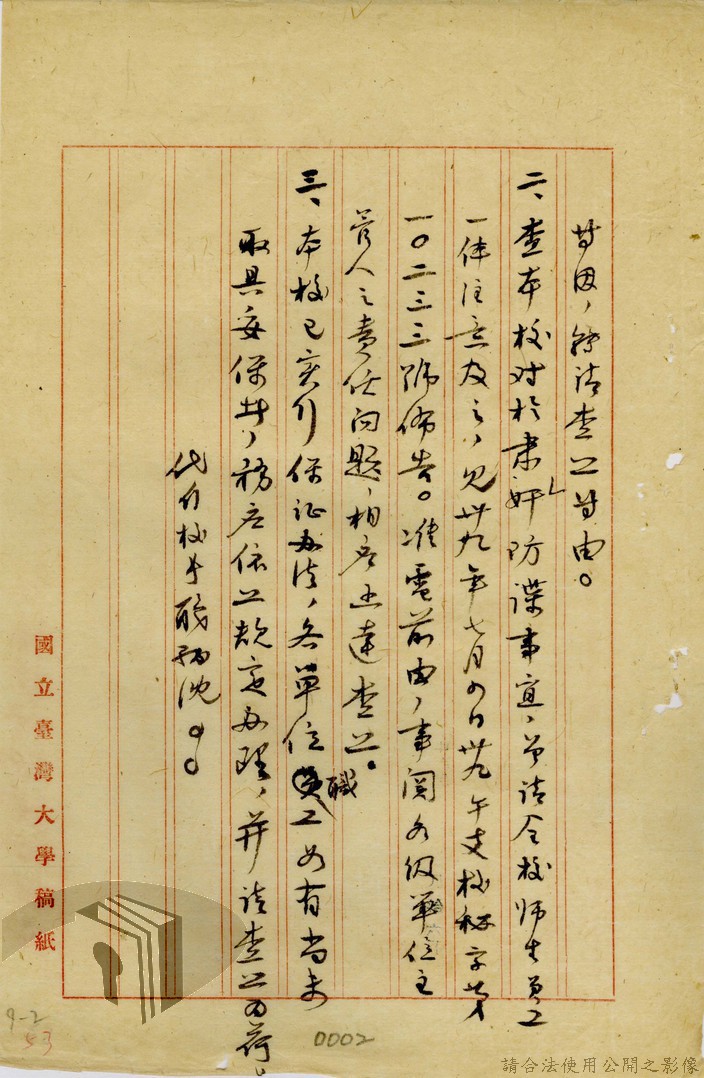 等因，特請查照等由。
二、查本校對於肅奸防諜事宜，曾請全校師生員工
一体注意及之，見卅九年七月四日卅九午支校秘字第
一〇二三三號佈告。准電前由，事関各级單位主
管人之責任问題，相应函達查照。
三、本校已实行保证办法，各單位職工如有尚未
取具妥保者，務应依照规定办理，并請查照为荷。
代行校長職務沈〇〇
國立臺灣大學稿紙
9-2
53
0002
請合法使用公開之影像